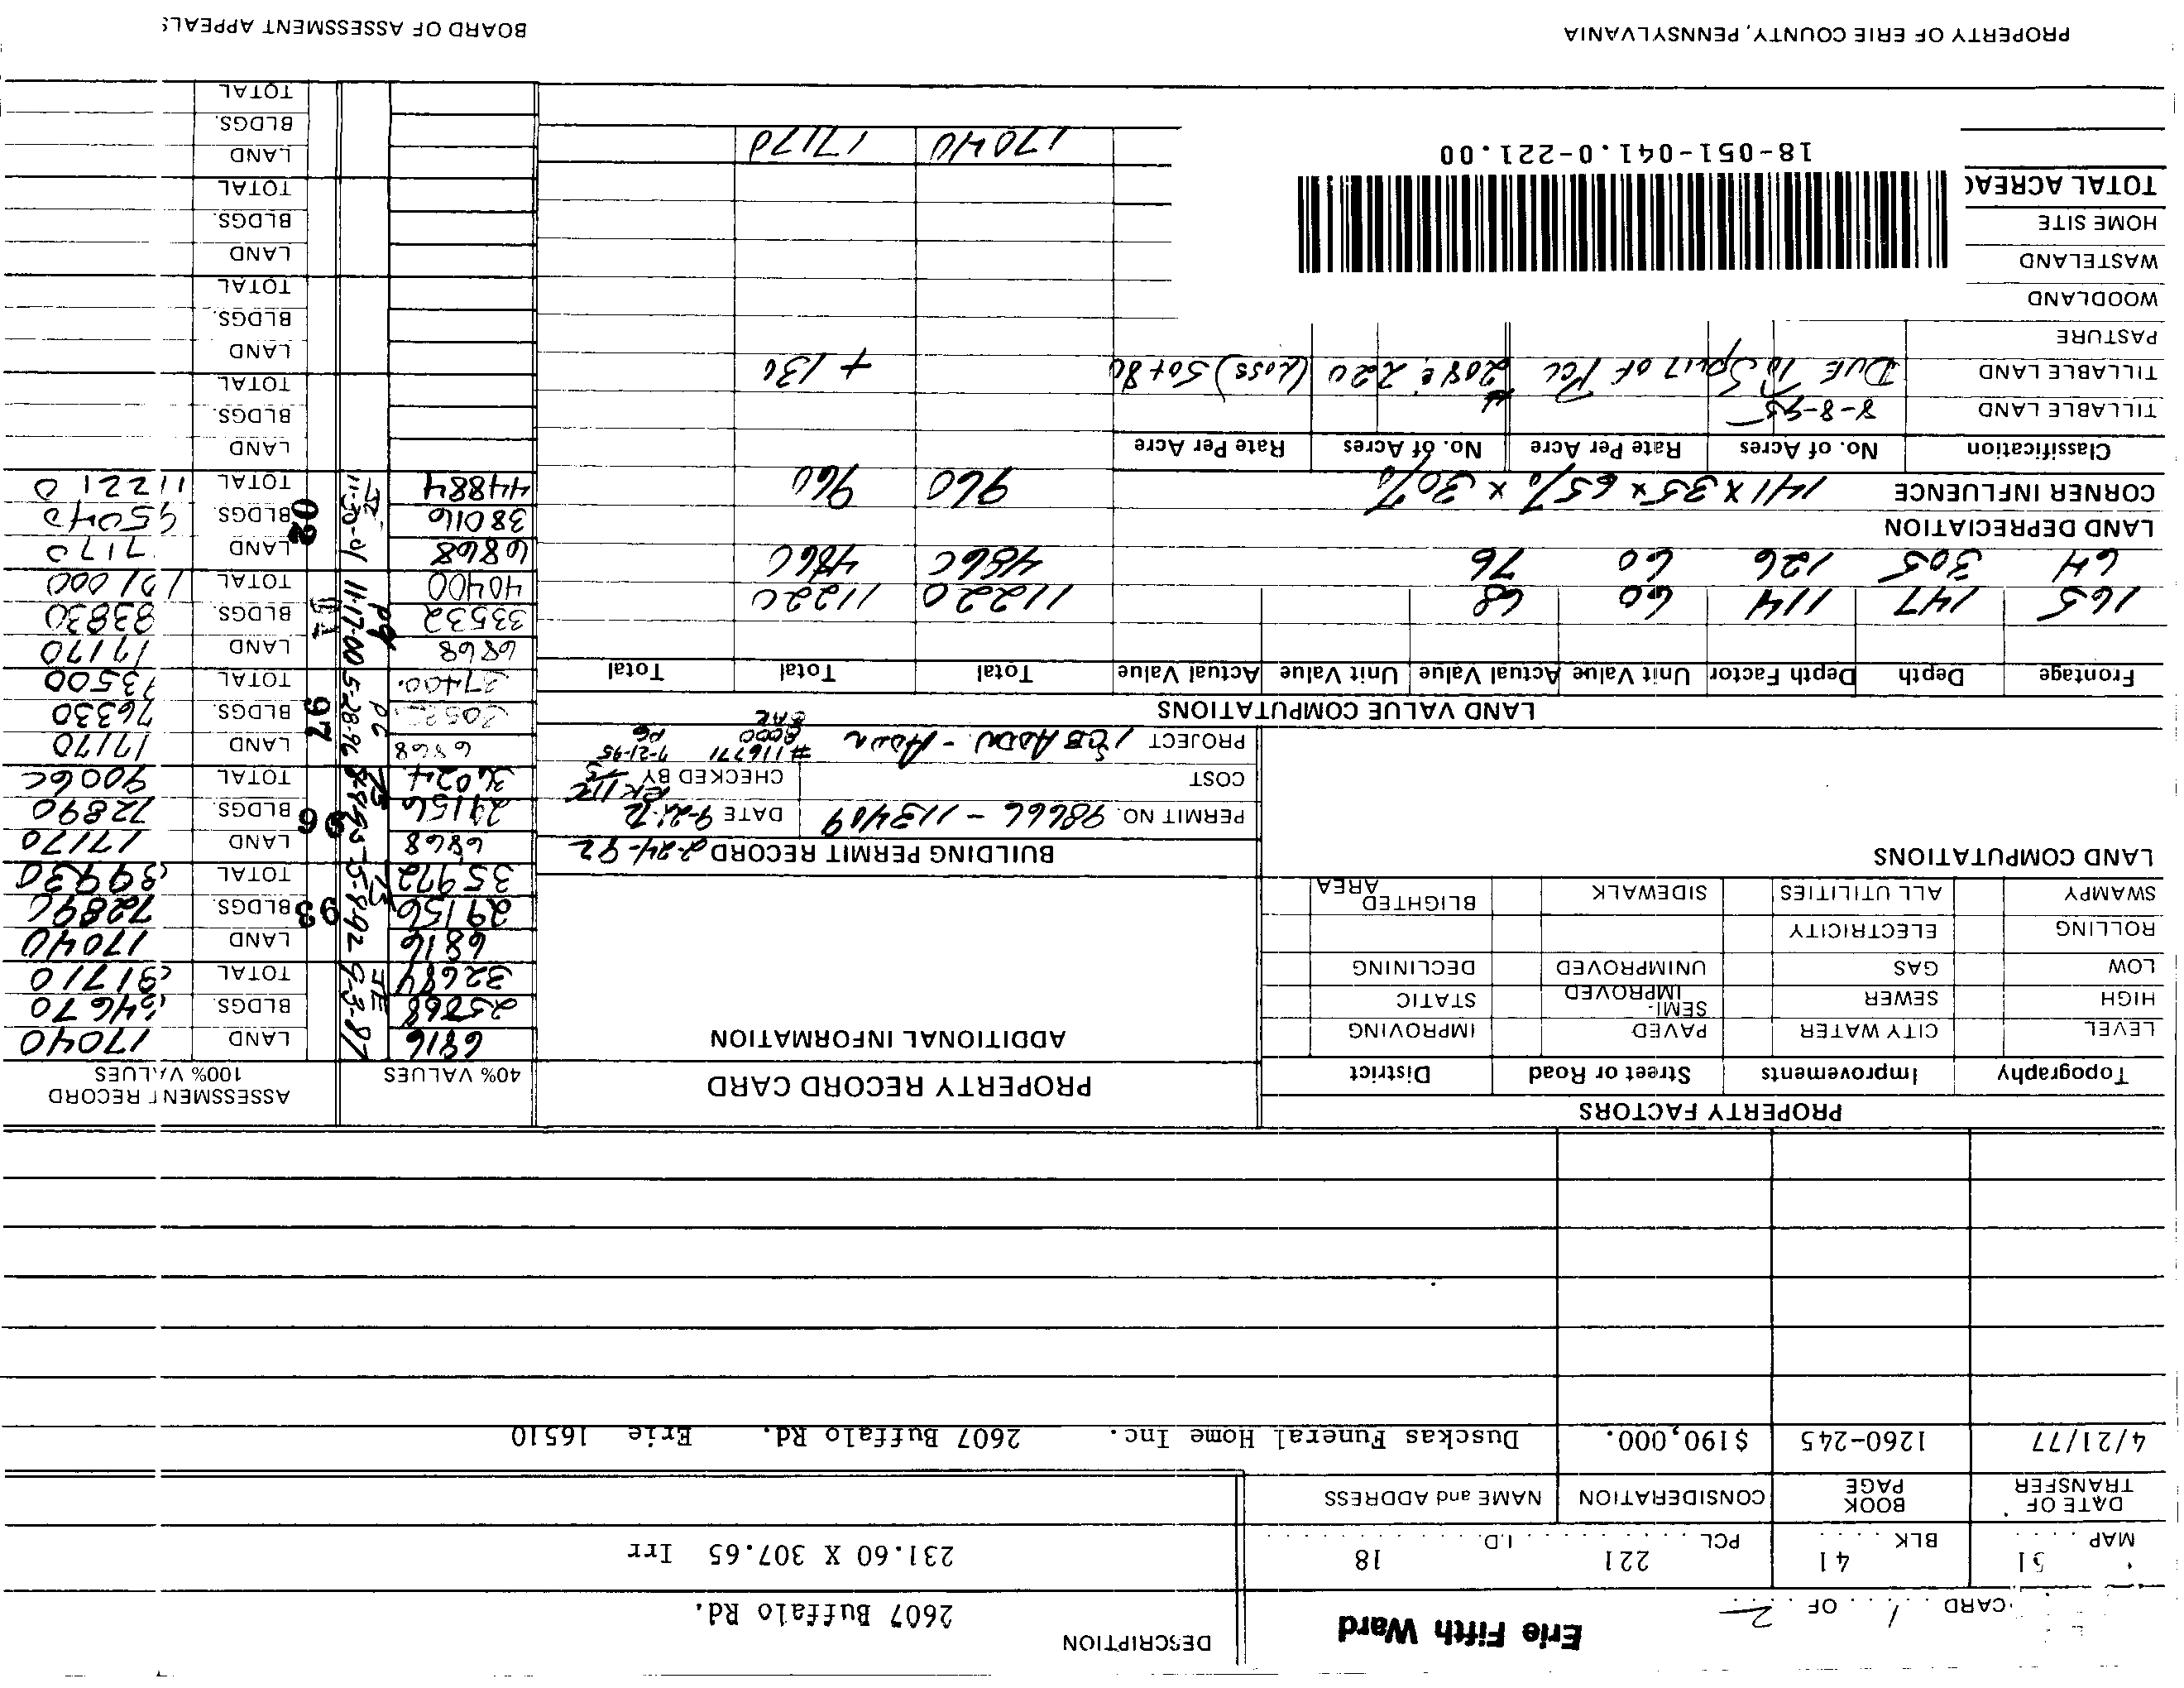 CARD 1 OF 2 Erie Fifth Ward DESCRIPTION 2607 Buffalo Rd.
MAP 51 BLK 41 PCL 221 I.D. 18 231.60 X 307.65 Irr
DATE OF TRANSFER BOOK PAGE CONSIDERATION NAME and ADDRESS
4/21/77 1260-245 $190,000. Dusckas Funeral Home Inc. 2607 Buffalo Rd. Erie 16510
PROPERTY FACTORS
Topography Improvements Street or Road District
LEVEL CITY WATER PAVED IMPROVING
HIGH SEWER SEMI-IMPROVED STATIC
LOW GAS UNIMPROVED DECLINING
ROLLING ELECTRICITY
SWAMPY ALL UTILITIES SIDEWALK BLIGHTED AREA
LAND COMPUTATIONS
PROPERTY RECORD CARD
ADDITIONAL INFORMATION
BUILDING PERMIT RECORD 2-24-92
PERMIT NO. 98666 - 113409 DATE 9-21-72
COST CHECKED BY
PROJECT
#116771 7-21-95
8000 PG
40% VALUES ASSESSMENT RECORD 100% VALUES
6816 LAND 17040
25868 9-3-87 BLDGS. 64670
32684 JE TOTAL 81710
6816 LAND 17040
29156 5-8-92 93 BLDGS. 72890
35972 TOTAL 89930
6868 LAND 17170
29156 96 BLDGS. 72890
36024 TOTAL 90060
6868 LAND 17170
5-28-96 PG 97 BLDGS. 76330
37400 TOTAL 93500
6868 LAND 17170
33532 11-17-00 pg BLDGS. 83830
40400 TOTAL 101000
6868 LAND 7170
38016 11-30-01 JE 02 BLDGS. 95040
44884 TOTAL 11221 0
LAND
BLDGS.
TOTAL
LAND
BLDGS.
TOTAL
LAND
BLDGS.
TOTAL
LAND
BLDGS.
TOTAL
LAND VALUE COMPUTATIONS
Frontage Depth Depth Factor Unit Value Actual Value Unit Value Actual Value Total Total Total
165 147 114 60 68 11220 11220
64 305 126 60 76 4860 4860
LAND DEPRECIATION
CORNER INFLUENCE 141 x 35 x 65% x 30% 960 960
Classification No. of Acres Rate Per Acre No. of Acres Rate Per Acre
TILLABLE LAND 8-8-95
TILLABLE LAND DUE TO Split of Pcl # 208 & 220 (Less) 50+80 + 130
PASTURE
WOODLAND
WASTELAND
HOME SITE
TOTAL ACREAG
18-051-041.0-221.00
17040 17170
PROPERTY OF ERIE COUNTY, PENNSYLVANIA BOARD OF ASSESSMENT APPEALS